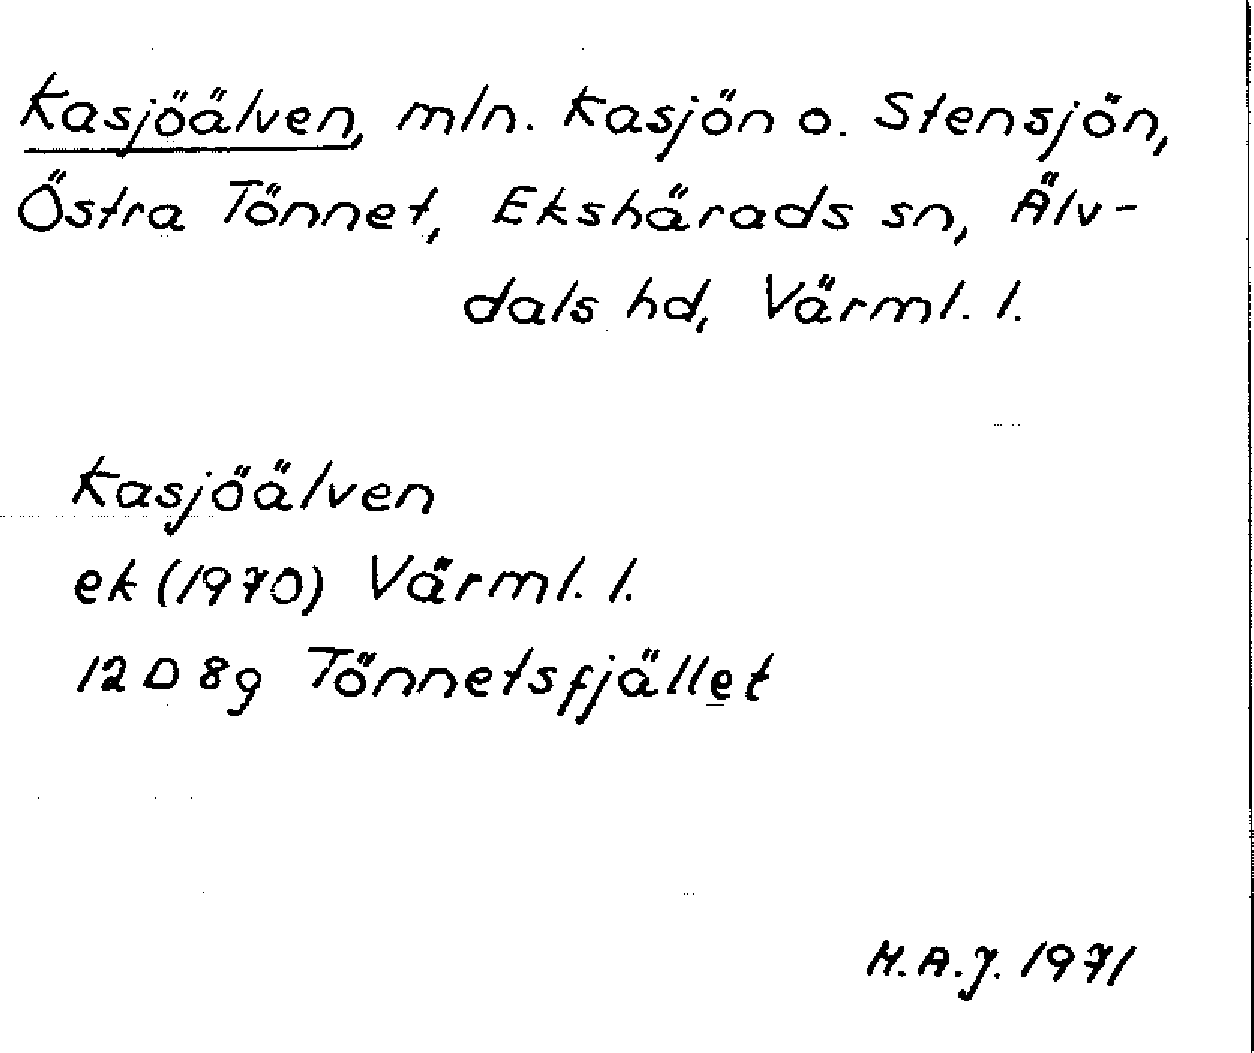 Kasjöälven, mln. Kasjön o. Stensjön,
Östra Tönnet, Ekshärads sn, Älv-
dals hd, Värml. l.
Kasjöälven
ek (1970) Värml. l.
12 D 8g Tönnetsfjället
H.A.J. 1971